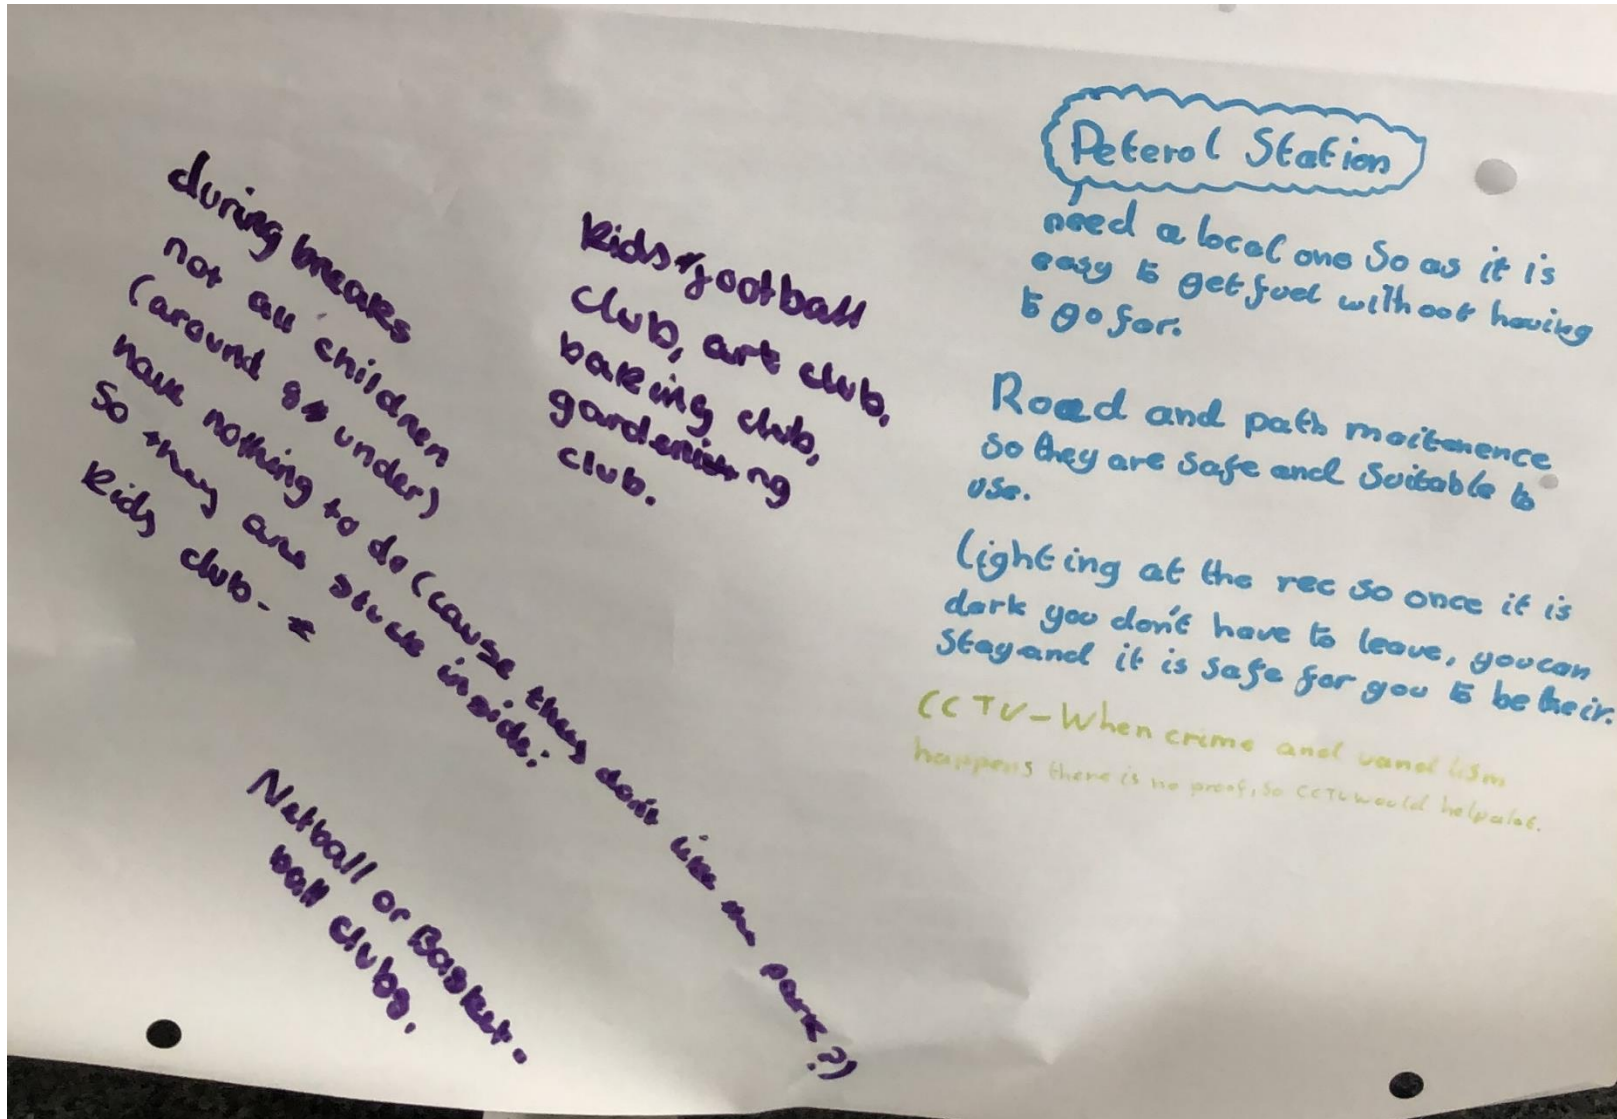 during breaks
not all children
(around 8 under)
have nothing to do (cause they don't like the park?)
so they are stuck inside:
kids club- *
Kids football
club, art club,
baking club,
gardening
club.
Netball or Basket.
ball clubs.
Peterol Station
need a local one So as it is
easy to get fuel without having
to go far.
Road and path maitenence
so they are safe and Suitable to
use.
Lighting at the rec so once it is
dark you don't have to leave, you can
Stay and it is safe for you to be their.
CCTV-When crime and vandlism
happens there is no proof, so CCTV would help alot.